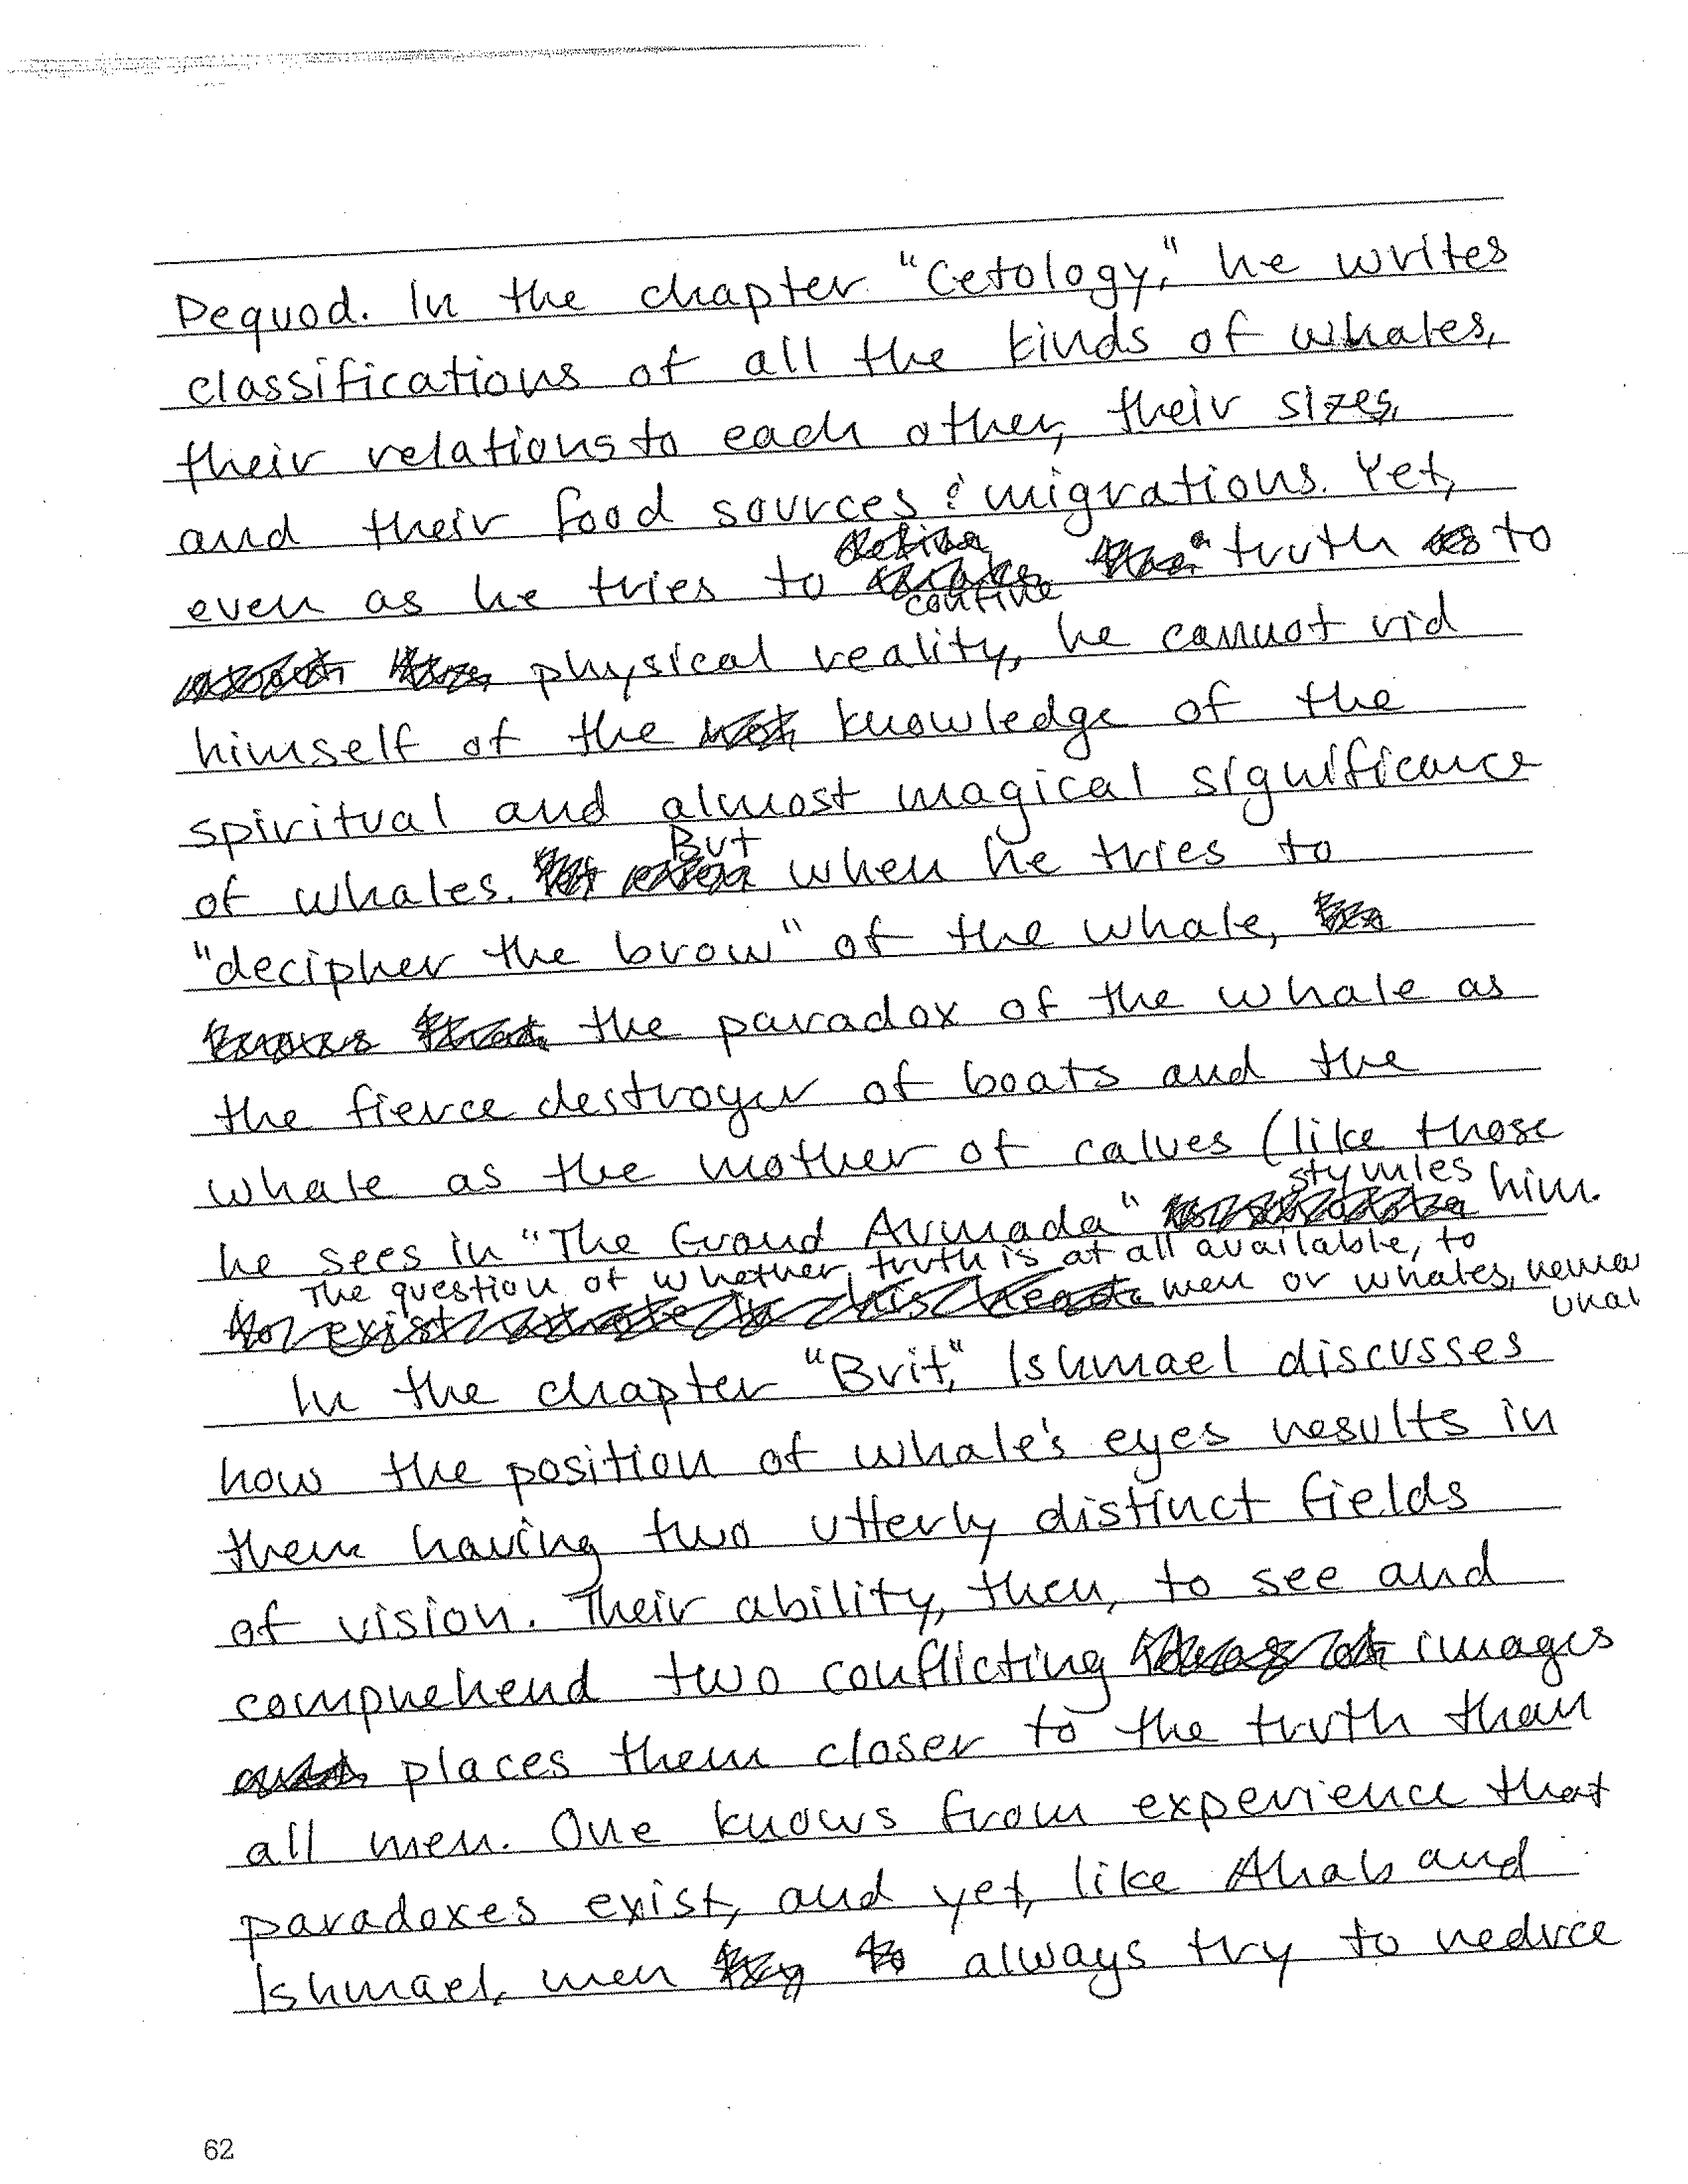 Pequod. In the chapter "Cetology," he writes
classifications of all the kinds of whales,
their relations to each other, their sizes,
and their food sources & migrations. Yet,
even as he tries to confine a truth to
physical reality, he cannot rid
himself of the knowledge of the
spiritual and almost magical significance
of whales. But when he tries to
"decipher the brow" of the whale,
the paradox of the whale as
the fierce destroyer of boats and the
whale as the mother of calves (like those
he sees in "The Grand Armada" stymies him.
The question of whether truth is at all available, to
men or whales,
In the chapter "Brit," Ishmael discusses
how the position of whale's eyes results in
them having two utterly distinct fields
of vision. Their ability, then, to see and
comprehend two conflicting images
places them closer to the truth than
all men. One knows from experience that
paradoxes exist, and yet, like Ahab and
Ishmael, men always try to reduce
62